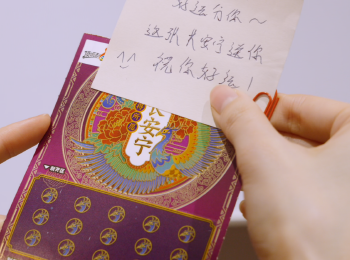 好运分你～
这张长安宁送你
^^ 祝你好运！
长安宁